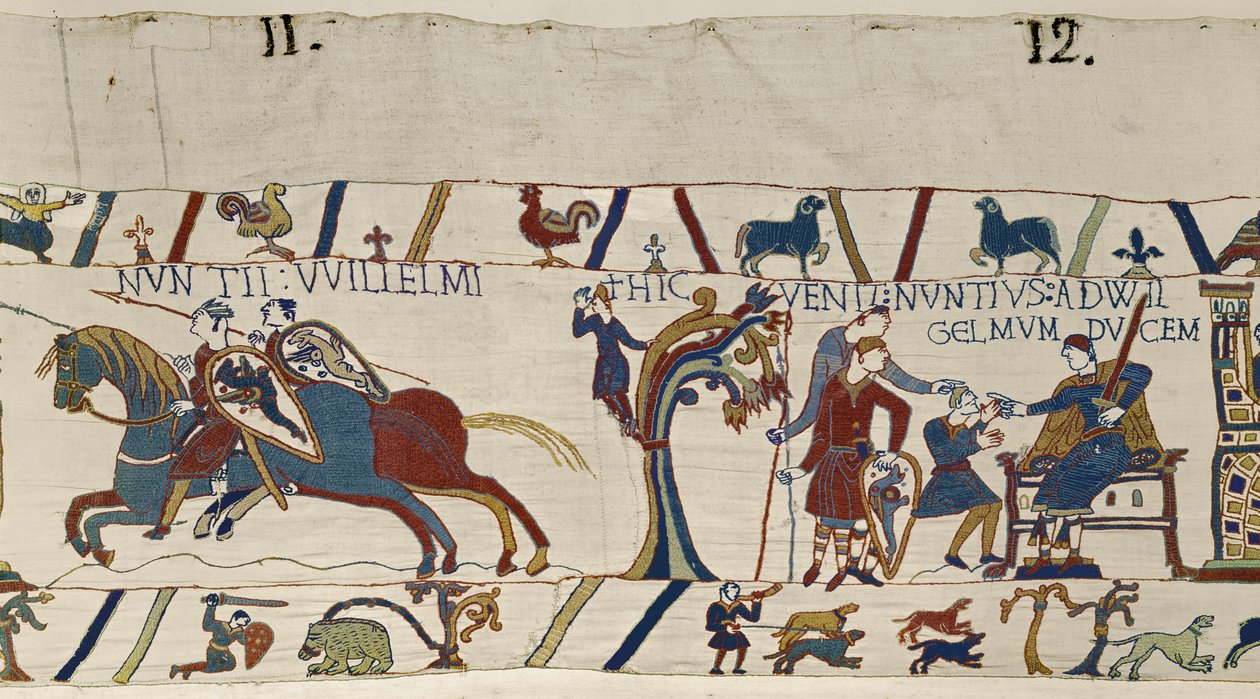 11.
12.
NVNTII : VVILLELMI
+HIC VENIT : NVNTIVS : AD WIL
GELMVM DVCEM